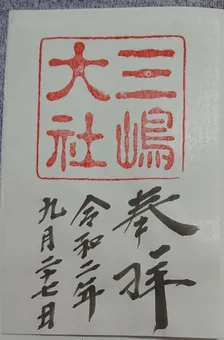 三嶋
大社
奉拝
令和二年
九月二十七日